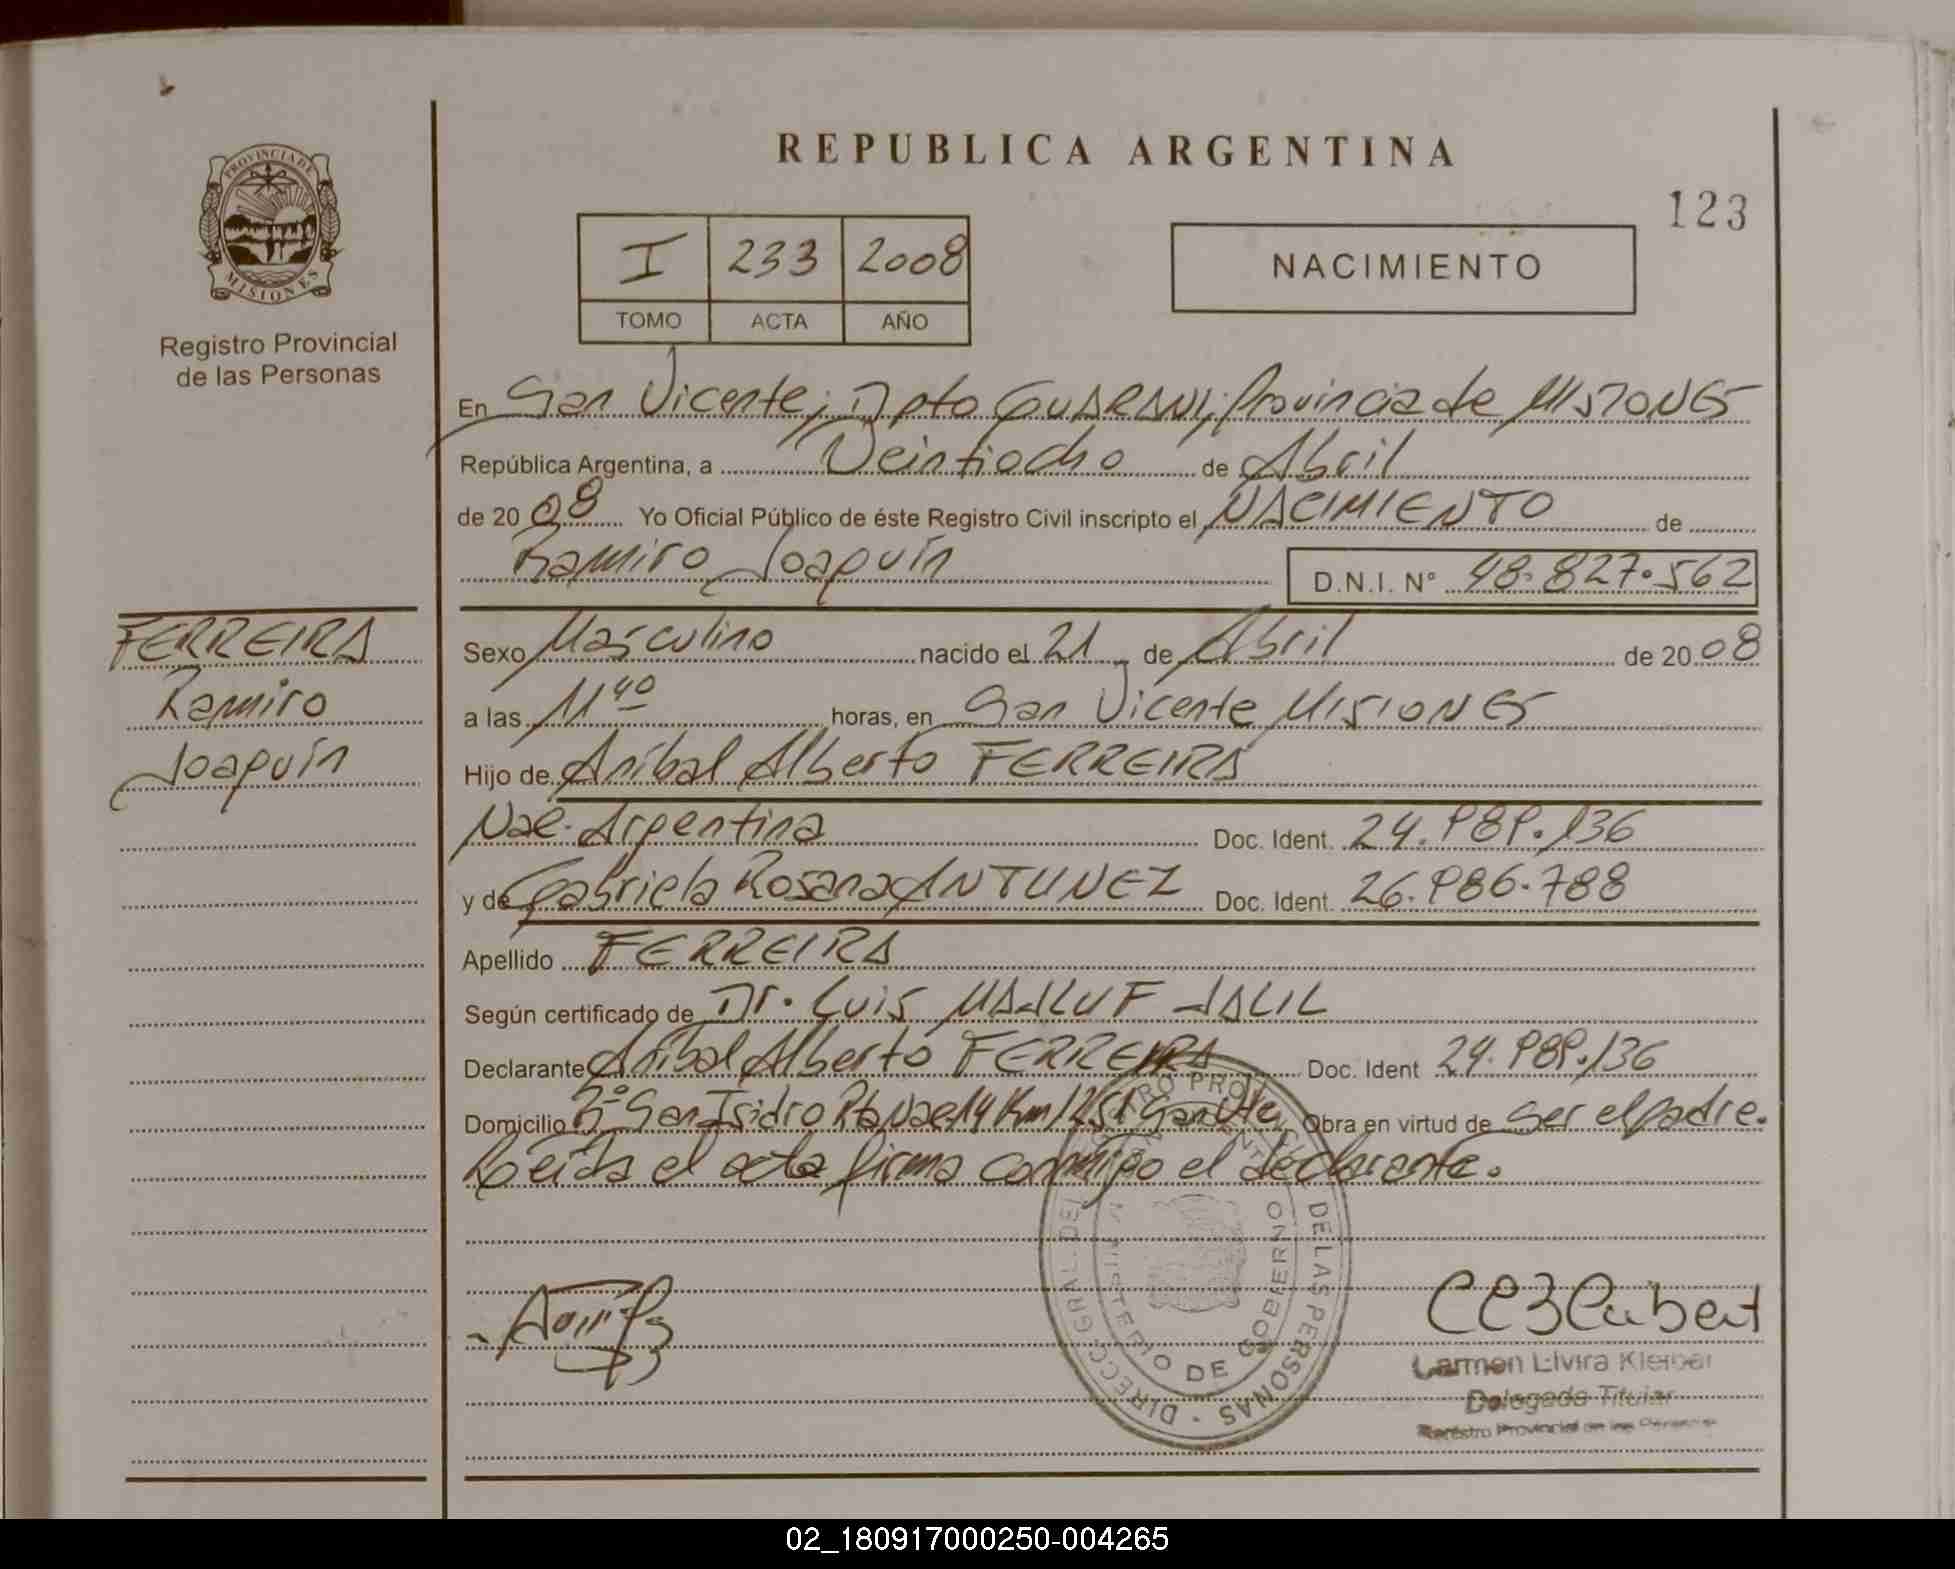 REPUBLICA ARGENTINA
123
PROVINCIA DE
MISIONES
Registro Provincial
de las Personas
I 233 2008
TOMO ACTA AÑO
NACIMIENTO
En San Vicente, Dpto GUARANI, Provincia de MISIONES
República Argentina, a Veintiocho de Abril
de 2008 Yo Oficial Público de éste Registro Civil inscripto el NACIMIENTO de
Ramiro Joaquín D.N.I. N° 48.827.562
FERREIRA
Ramiro
Joaquín
Sexo Masculino nacido el 21 de Abril de 2008
a las 11 40 horas, en San Vicente MISIONES
Hijo de Aníbal Alberto FERREIRA
Nac. Argentina Doc. Ident. 24.989.136
y de Gabriela Rosana ANTUNEZ Doc. Ident. 26.986.788
Apellido FERREIRA
Según certificado de Dr. Luis MAJLUF JALIL
Declarante Aníbal Alberto FERREIRA Doc. Ident 24.989.136
Domicilio Bº San Isidro Rta Nac 14 Km 1251 San Vte Obra en virtud de ser el padre.
Leída el acta firma conmigo el declarante.
DIRECC GRAL DEL REGISTRO PROVINCIAL DE LAS PERSONAS
MINISTERIO DE GOBIERNO
Carmen Elvira Kleiber
Delegada Titular
Registro Provincial de las Personas
02_180917000250-004265